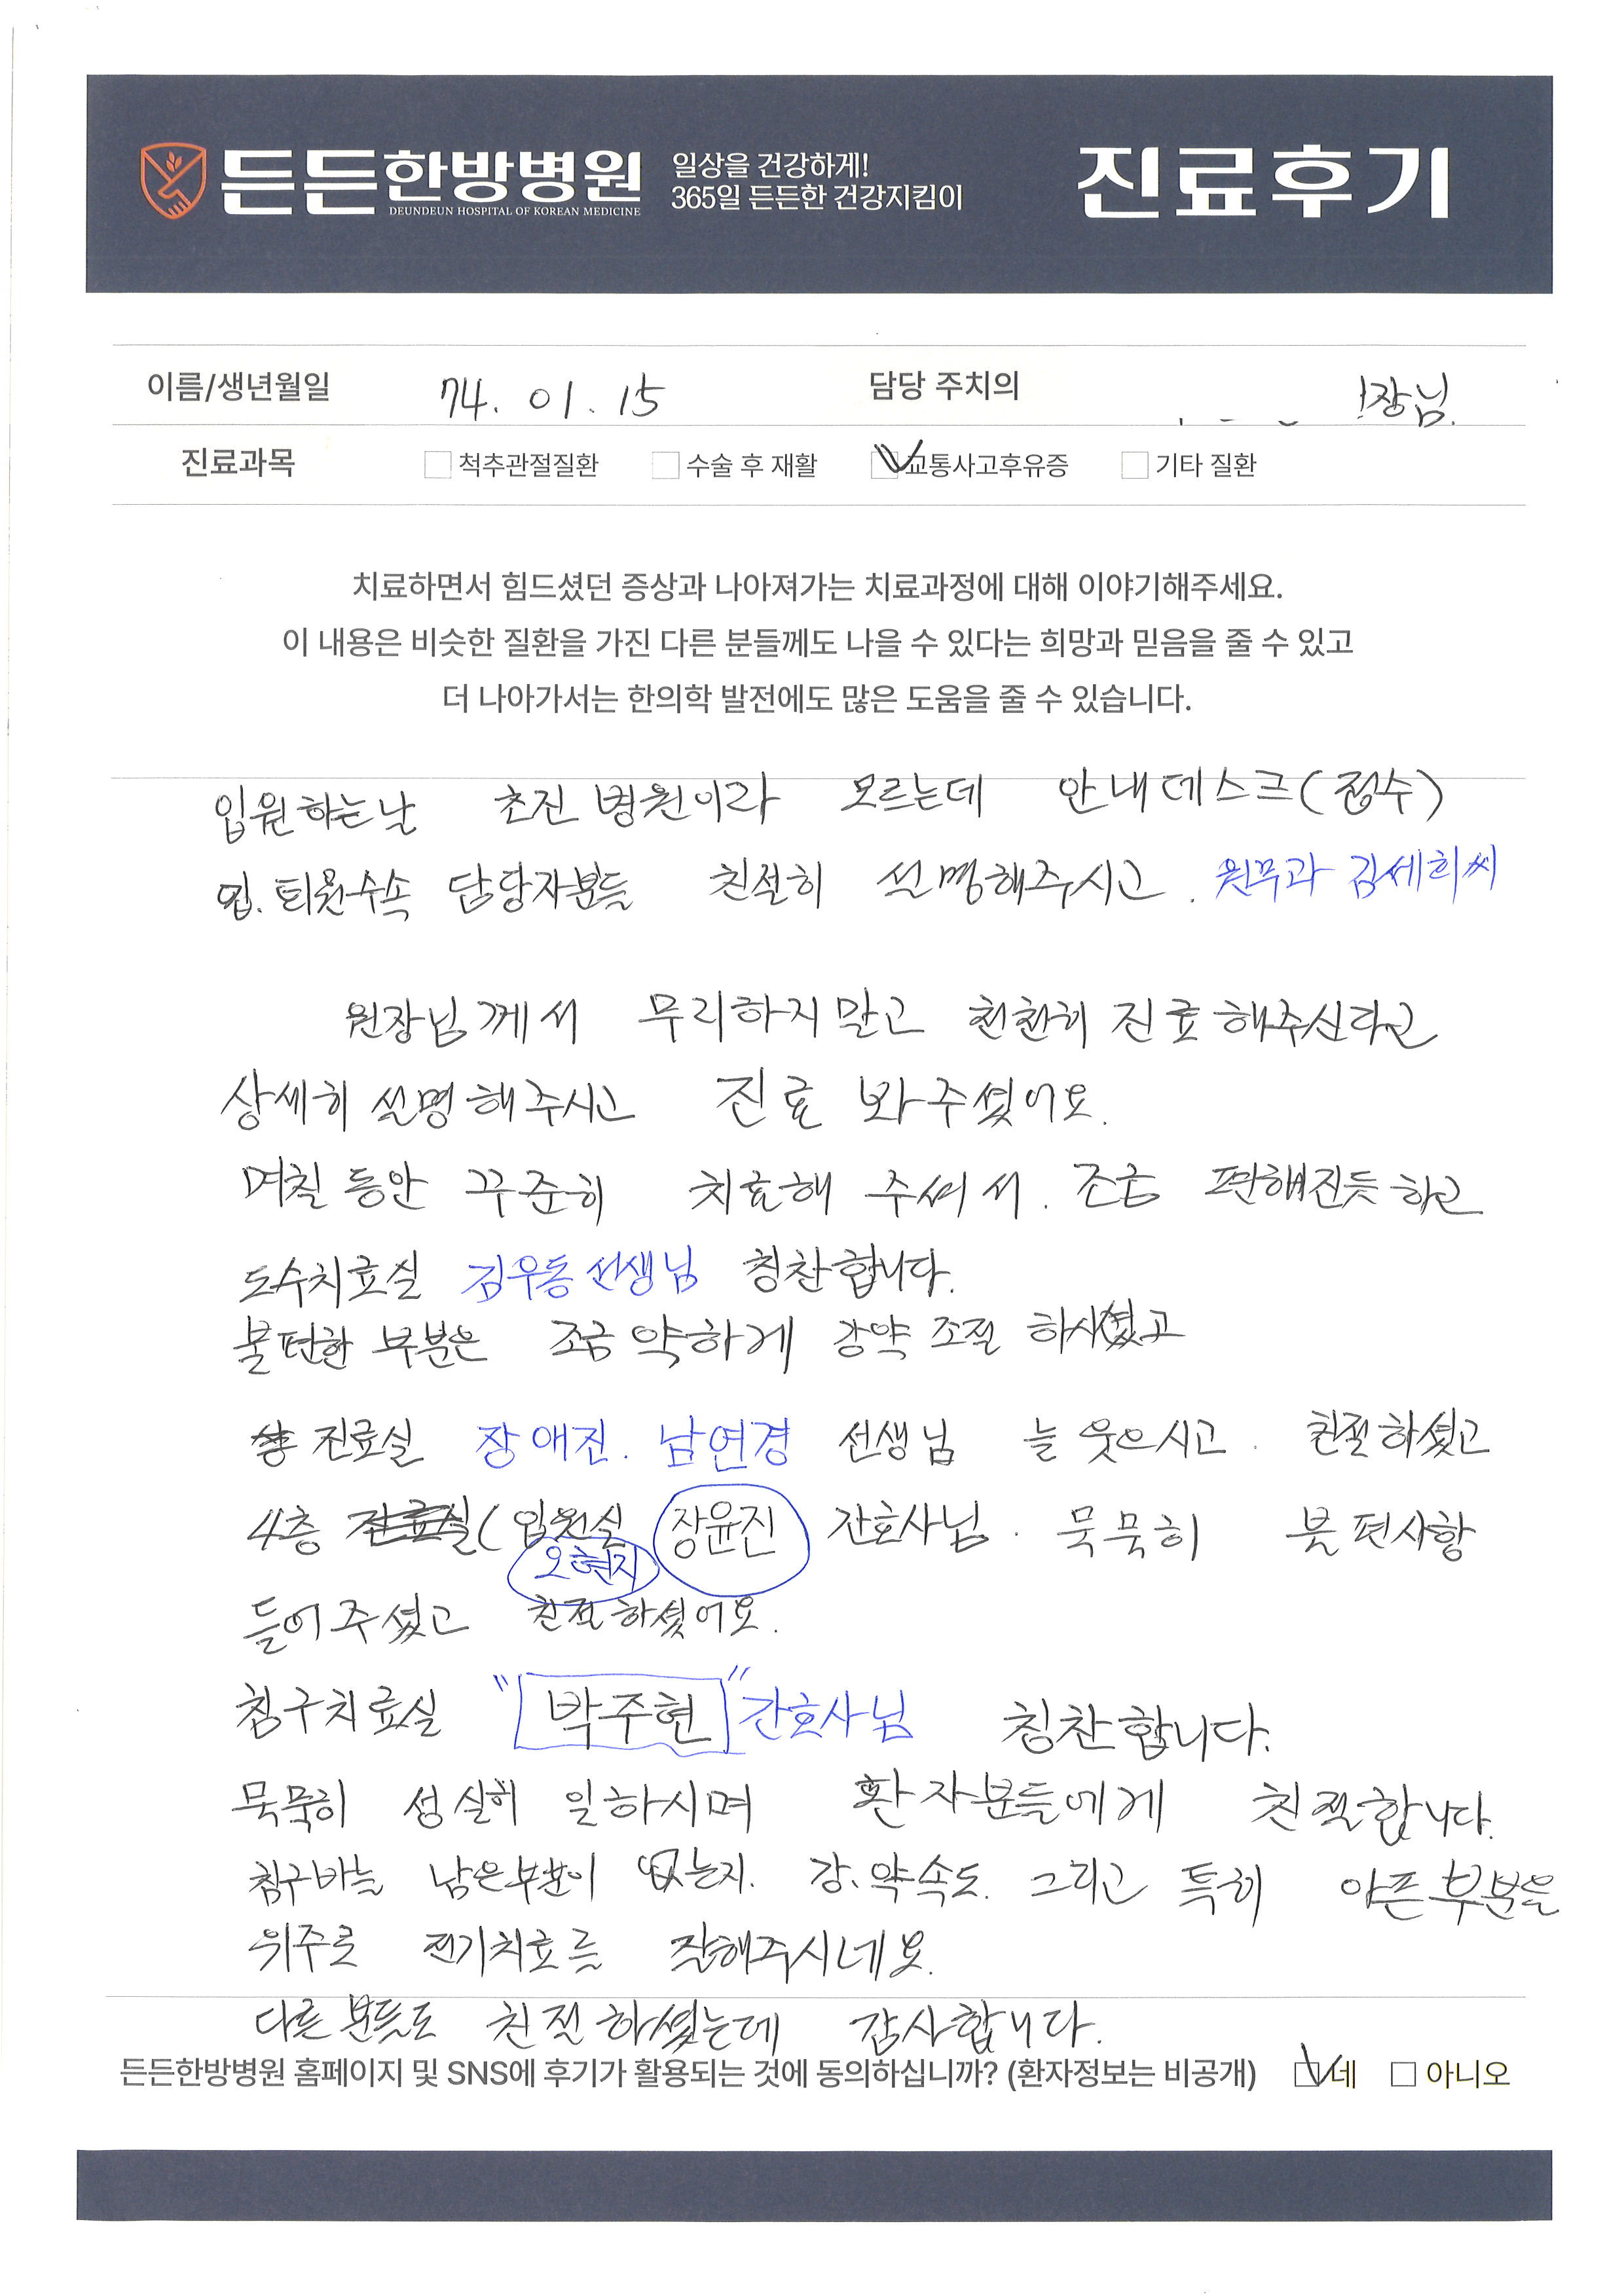 든든한방병원
DEUNDEUN HOSPITAL OF KOREAN MEDICINE
일상을 건강하게!
365일 든든한 건강지킴이
진료후기
이름/생년월일 74. 01. 15 담당 주치의 장님.
진료과목 척추관절질환 수술 후 재활 교통사고후유증 기타 질환
치료하면서 힘드셨던 증상과 나아져가는 치료과정에 대해 이야기해주세요.
이 내용은 비슷한 질환을 가진 다른 분들께도 나을 수 있다는 희망과 믿음을 줄 수 있고
더 나아가서는 한의학 발전에도 많은 도움을 줄 수 있습니다.
입원하는날 초진 병원이라 모르는데 안내데스크(접수)
입.퇴원수속 담당자분들 친절히 설명해주시고. 원무과 김세희씨
원장님께서 무리하지말고 천천히 진료해주신다고
상세히 설명해주시고 진료 봐주셨어요.
며칠동안 꾸준히 치료해 주셔서. 조금 편해진듯하고
도수치료실 김우동선생님 칭찬합니다.
불편한 부분은 조금 약하게 강약 조절 하시셨고
진료실 장애진. 남연경 선생님 늘 웃으시고. 친절하셨고
4층 (입원실 장윤진 간호사님. 묵묵히 불편사항
오현지
들어주셨고 친절하셨어요.
침구치료실 "박주현" 간호사님 칭찬합니다.
묵묵히 성실히 일하시며 환자분들에게 친절합니다.
침구바늘 남은부분이 없는지. 강.약속도. 그리고 특히 아픈부분을
위주로 전기치료를 잘해주시네요.
다른분들도 친절하셨는데 감사합니다.
든든한방병원 홈페이지 및 SNS에 후기가 활용되는 것에 동의하십니까? (환자정보는 비공개) 네 아니오